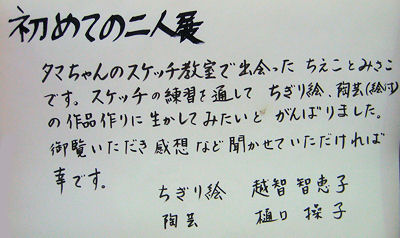 初めての二人展
タマちゃんのスケッチ教室で出会った ちえことみさこ
です。スケッチの練習を通して ちぎり絵、陶芸(絵付)
の作品作りに生かしてみたいと がんばりました。
御覧いただき感想など聞かせていただければ
幸です。
ちぎり絵 越智 智恵子
陶芸 樋口 操子